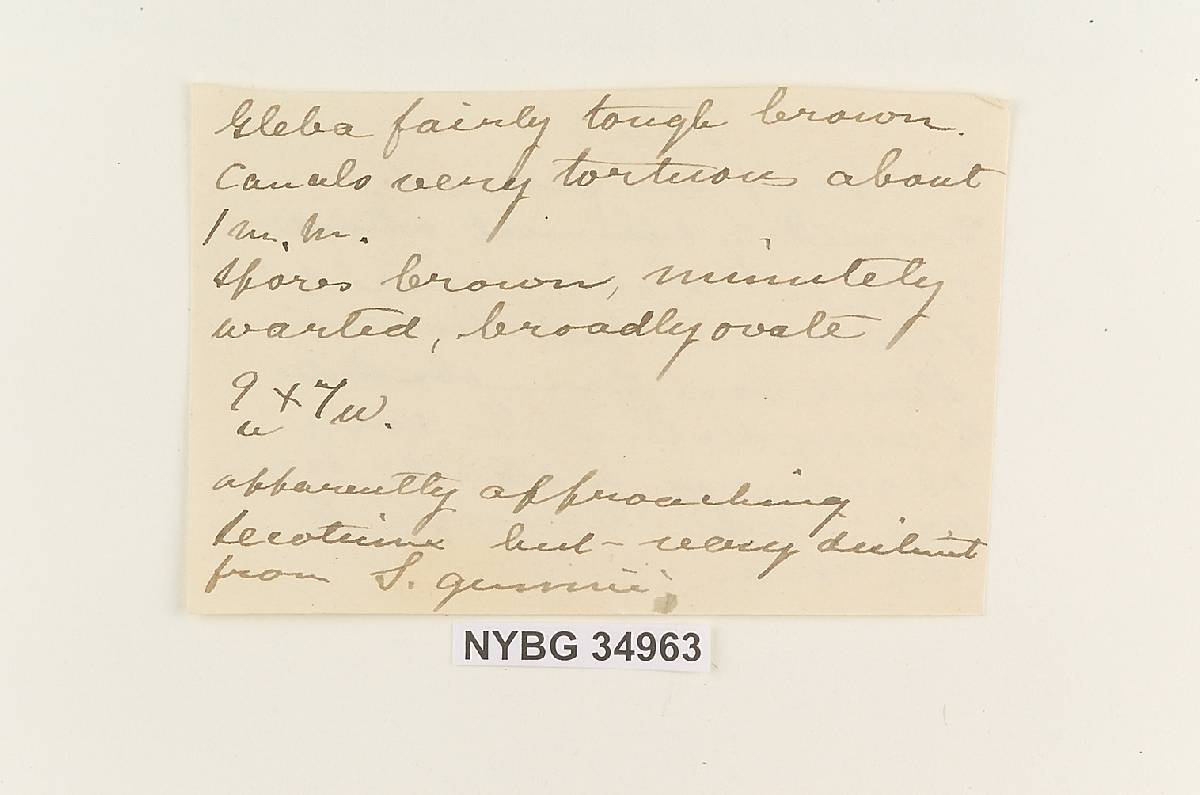 Gleba fairly tough brown.
Canals very tortuous about
1 m.m.
spores brown, minutely
warted, broadly ovate
9 u x 7 u.
apparently approaching
Secotium but - very distinct
from S. gunnii.
NYBG 34963